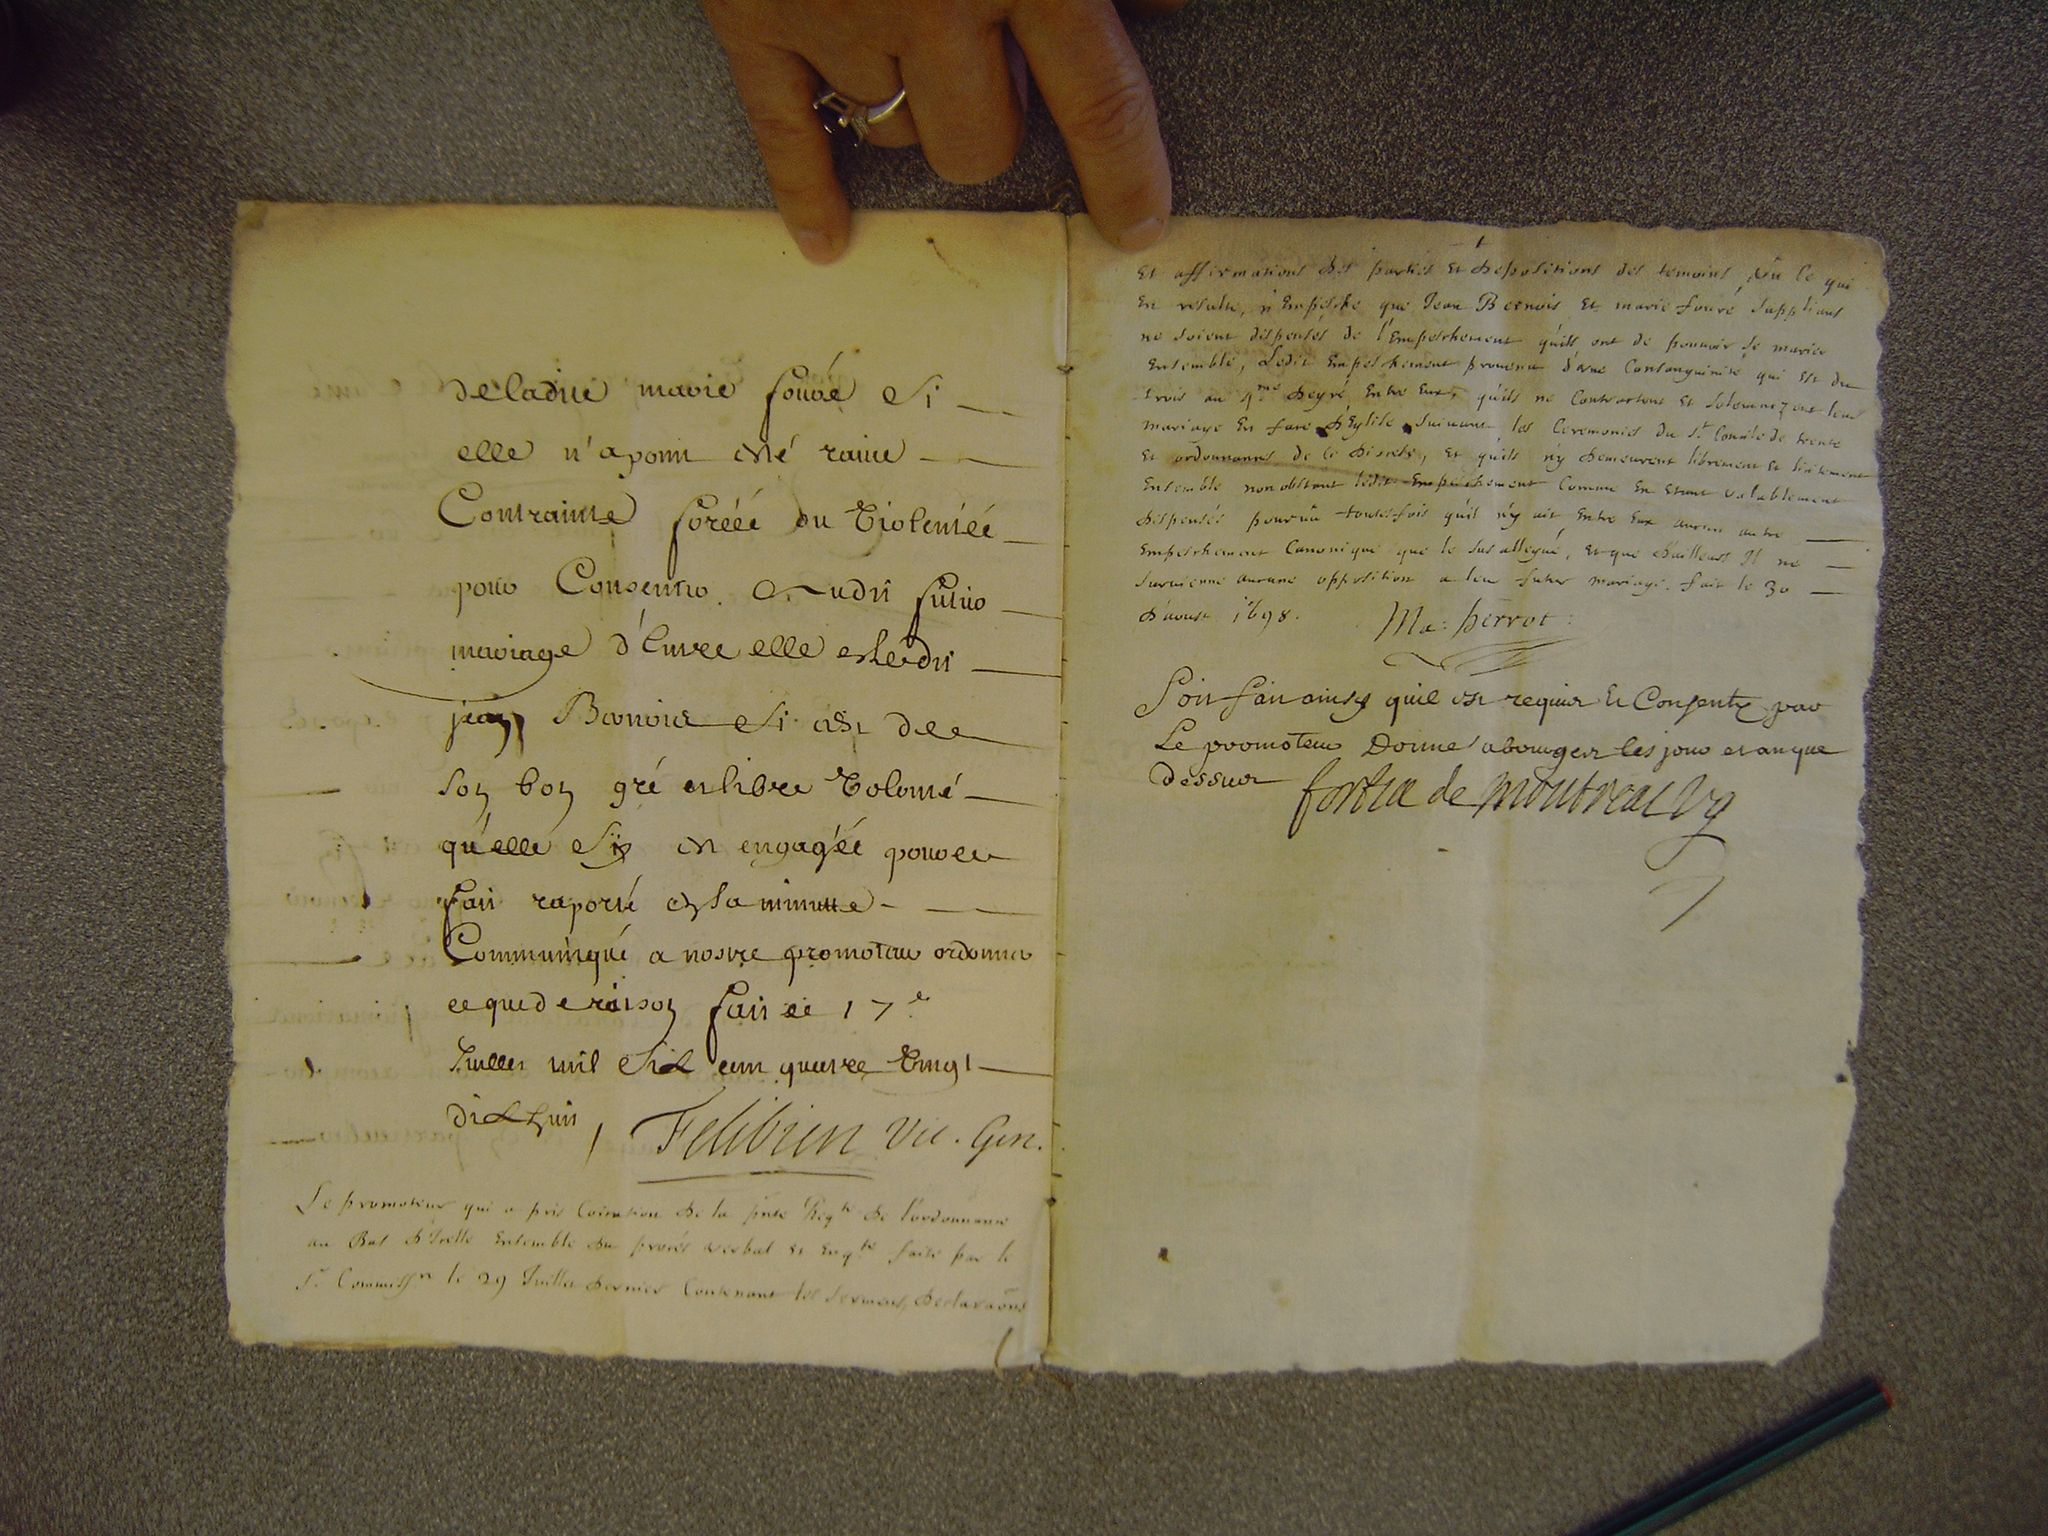 de la dite marie fouré si
elle n'a point esté ravie
Contrainte forcée ou violentée
pour Consentir audit futur
mariage d'entre elle et ledit
jean Bernois si c'est de
son bon gré et libre volonté
qu'elle s'y est engagée pour le
fait raporté et la minutte
Communiqué a nostre promoteur ordonner
ce que de raison fait ce 17e
Juillet mil six cent quatre vingt
dix huit, Felibien Vic. Gen.
Le promoteur qui a pris Coīcation de la pnte Reqte de l'ordonnance
au Bas D'Icelle Ensemble du procés verbal et Enqte faite par le
Sr. Commissre le 29 Juillet dernier Contenant les serments, declaraōns
Et affirmations des parties Et depositions des temoins, vû ce qui
En resulte, n'Empesche que Jean Bernois Et marie fouré supplians
ne soient dispensés de l'Empeschement qu'ils ont de pouvoir se marier
Ensemble, Ledit Empeschement provenu d'une Consanguinité qui est du
trois au 4me degré Entre Eux, qu'ils ne Contractent Et solemnizent leur
mariage En face d'Eglise suivant les Ceremonies du St. Concile de trente
Et ordonnances de ce diocese, Et qu'ils n'y demeurent librement Et licitement
Ensemble nonobstant ledit Empeschement Comme En Etant valablement
dispensés pourvû toutesfois qu'il n'y ait Entre Eux aucun autre
Empeschement Canonique que le sus allegué, et que d'ailleurs Il ne
survienne aucune opposition a leur futur mariage. fait le 30
d'aoust 1698. Ma: perrot
Soit fait ainsy quil est requis Et Consenty par
Le promoteur Donné a bourges les jour et an que
dessus fortia de montreal Vg